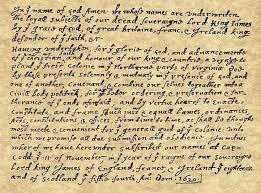 In yᵉ name of god Amen. We whose names are underwriten,
the loyall subjects of our dread soveraigne Lord King James
by yᵉ grace of god, of great Britaine, franc, & Ireland king,
defender of yᵉ faith, &c.
Haveing undertaken, for yᵉ glorie of god, and advancemente
of yᵉ christian and honour of our king & countrie, a voyage to
plant yᵉ first colonie in yᵉ Northerne parts of Virginia. Doe
by these presents solemnly & mutualy in yᵉ presence of god, and
one of another, covenant, & combine our selves togeather into a
civill body politick; for our better ordering, & preservation & fur-
therance of yᵉ ends aforesaid; and by vertue hearof to enacte,
constitute, and frame shuch just & equall lawes, ordinances,
acts, constitutions, & offices, from time to time, as shall be thought
most meete & convenient for yᵉ generall good of yᵉ colonie: unto
which we promise all due submission and obedience. In witnes
wherof we have hereunder subscribed our names at Cape
Codd yᵉ 11 of November, in yᵉ year of yᵉ raigne of our soveraigne
Lord king James of England, franc, & Ireland yᵉ eighteenth
and of Scotland yᵉ fiftie fourth. An: Dom. 1620.